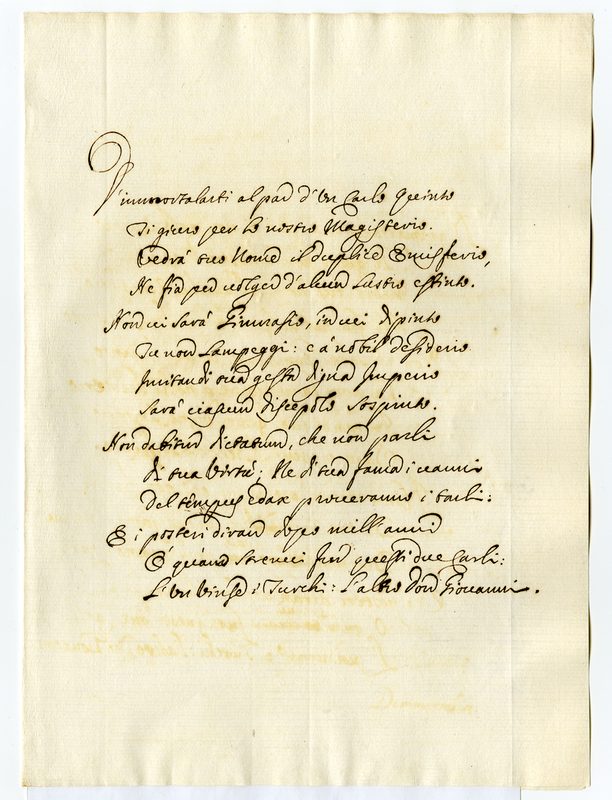 D'immortalarti al par d'un Carlo Quinto
Ti giuro per lo nostro Magisterio.
Vedrà tuo Nome il duplice Emisferio,
Ne fia per volger d'alcun Lustro estinto.
Non vi sarà Ginnasio, in cui dipinto
Tu non Lampeggi: e a nobil desiderio
Imitandi tua gesta digna Imperio
Sarà ciascun discepolo sospinto.
Non dabitur dictatum, che non parli
di tua virtù; Ne di tua fama i vanni
Del tempus edax proveranno i tarli:
E i posteri diran dopo mill'anni
O quam strenui fur questi due Carli:
L'un vinse i Turchi: L'altro Don Giovanni.